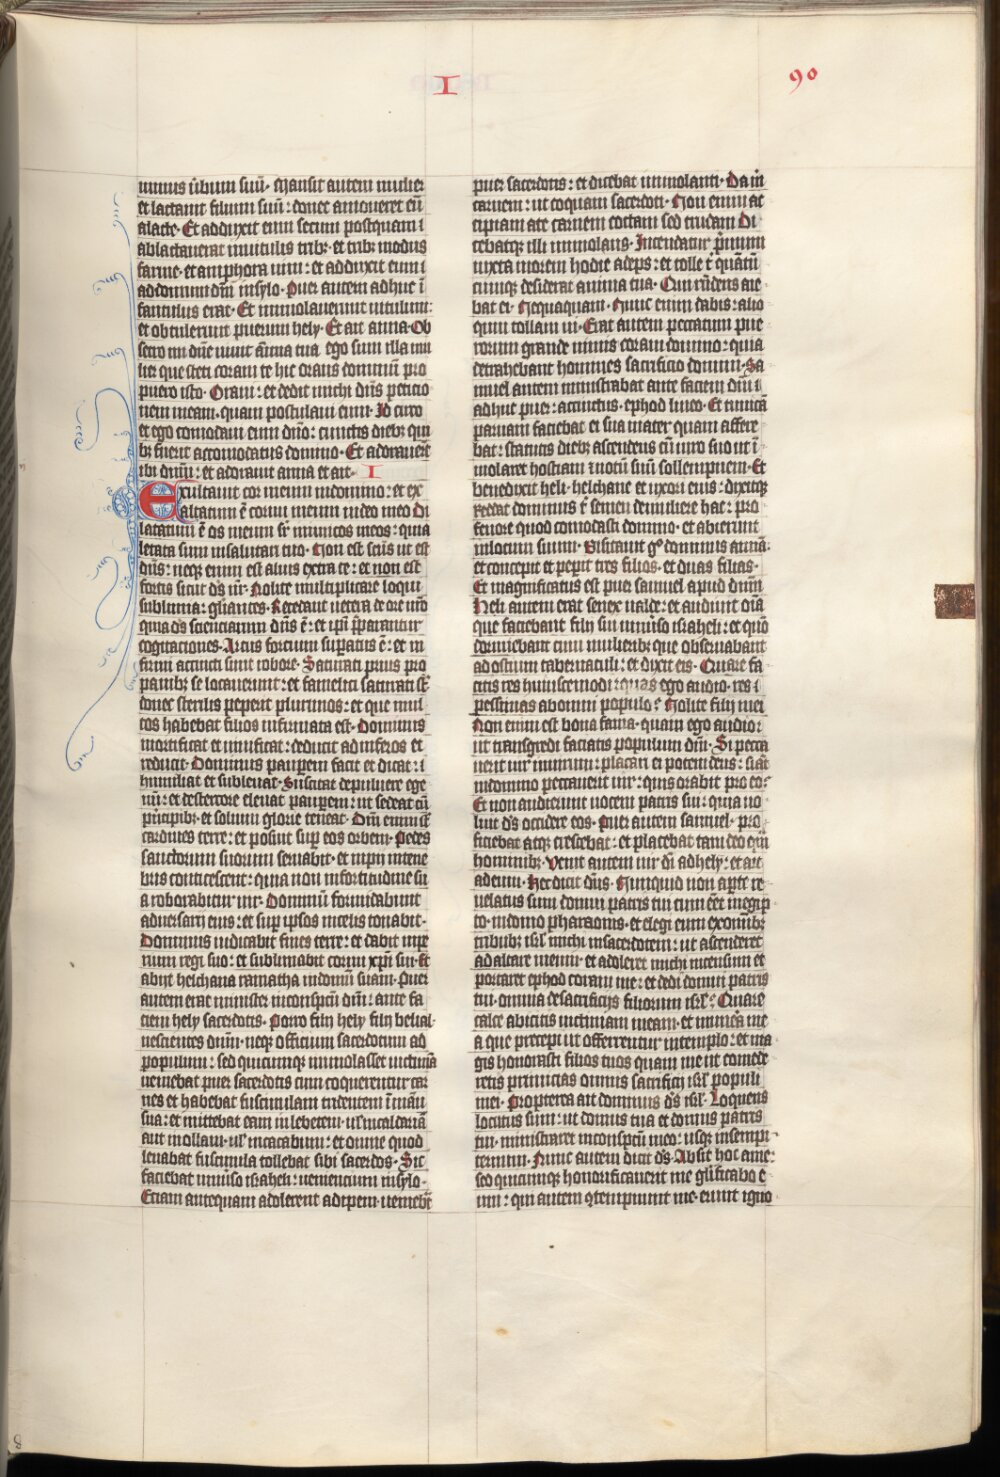 I
90
minus ũbum suũ· Mansit autem mulier
et lactauit filium suũ: donec amoueret eũ
alacte· Et adduxit eum secum postquam i
ablactauerat inuitulis tribꝫ· et tribꝫ modiis
farine· et amphora uini: et adduxit eum i
addomum dñi insylo· Puer autem adhuc ĩ
fantulus erat· Et immolauerunt uitulum:
et obtulerunt puerum hely· Et ait anna· Ob
secro mi dñe uiuit aĩma tua ego sum illa mu
lier que steti coram te hic orans dominum pro
puero isto· Oraui: et dedit michi dñs peticio
nem meam· quam postulaui eum· Id circo
et ego comodaui eum dño: cunctis diebꝫ qui
bꝫ fuerit accomodatus domino· Et adorauerũt
ibi dñm: et adorauit anna et ait· I
Exultauit cor meum indomino: et ex
altatum ē cornu meum indeo meo Di
latatum ē os meum sr̃ inimicos meos: quia
letata sum insalutari tuo· Non est scũs ut est
dñs: neqꝫ enim est alius extra te: et non est
fortis sicut ds nr̃· Nolite multiplicare loqui
sublimia: gliantes· Recedant uetera de ore uro
quia ds scienciarum dñs ē: et ipi p̃parantur
cogitaciones· Arcus fortium supatus ē: et in
firmi accincti sunt robore· Saturati prius pro
panibꝫ se locauerunt: et famelici saturati st̃·
donec sterilis peperit plurimos: et que mul
tos habebat filios infirmata est· Dominus
mortificat et uiuificat: deducit adinferos et
reducit· Dominus paupem facit et ditat: i
humiliat et subleuat· Suscitat depuluere ege
nũ: et destercore eleuat paupem: ut sedeat cũ
pͥncipibꝫ· et solium glorie teneat· Dñi enim st̃
cardines terre: et posuit sup eos orbem· Pedes
sanctorum suorum seruabit· et impii intene
bris conticescent: quia non infortitudine su
a roborabitur uir· Dominũ formidabunt
aduersarij eius: et sup ipsos incelis tonabit·
Dominus iudicabit fines terre: et dabit impe
rium regi suo: et sublimabit cornu xpi sui· Et
abijt helchana ramatha indomũ suam· Puer
autem erat minister inconspectũ dñi: ante fa
ciem hely sacerdotis· Porro filij hely filij belial·
nescientes dñm· neqꝫ officium sacerdotum ad
populum: sed quicumqꝫ immolasset uictimã
ueniebat puer sacerdotis cum coquerentur car
nes et habebat fuscinulam tridentem ĩ manu
sua: et mittebat eam inlebetem· ul incaldariã
aut inollam· ul incacabum: et omne quod
leuabat fuscinula tollebat sibi sacerdos· Sic
faciebat uniũso israheli: uenientium insylo·
Etiam antequam adolerent adipem· ueniebat
puer sacerdotis: et dicebat immolanti· Da m̃
carnem: ut coquam sacerdoti· Non enim ac
cipiam ate carnem coctam sed crudam Di
cebatqꝫ illi immolans· Incendatur p̃mum
iuxta morem hodie adeps: et tolle t̃ quantũ
cumqꝫ desiderat anima tua· Qui rñdens aie
bat ei· Nequaquam· Nunc enim dabis: alio
quin tollam ui· Erat autem peccatum pue
rorum grande nimis coram domino: quia
detrahebant homines sacrificio domini· Sa
muel autem ministrabat ante faciem dñi i
adhuc puer: accinctus· ephod lineo· Et tunicã
paruam faciebat ei sua mater quam affere
bat: statutis diebꝫ ascendens cũ uiro suo ut i
molaret hostiam ĩ uotũ suũ sollempnem· Et
benedixit heli· helchane et uxori eius: dixitqꝫ
Reddat dominus t̃ semen demuliere hac: pro
fenore quod comodasti domino· et abierunt
inlocum suum· Visitauit gͦ dominus annã:
et concepit et pepit tres filios· et duas filias·
Et magnificatus est puer samuel apud dñm
Heli autem erat senex ualde: et audiuit oĩa
que faciebant filij sui uniũso israheli: et quõ
dormiebant cum mulieribꝫ que obseruabant
adostium tabernaculi: et dixit eis· Quare fa
citis res huiuscemodi quas ego audio· res i
pessimas abomni populo? Nolite filij mei
Non enim est bona fama· quam ego audio:
ut transgredi faciatis populum dñi· Si pecca
uerit uir inuirum: placari ei potent deus: si aũt
indomino peccauerit uir: quis orabit pro eo?
Et non audierunt uocem patris sui: quia uo
luit ds occidere eos· Puer autem samuel· pro
ficiebat atqꝫ crescebat: et placebat tam deo qm̃
hominibꝫ· Venit autem uir di adhely: et ait
adeum· Hec dicit dñs· Nunquid non apte re
uelatus sum domui patris tui cum eet inegip
to· indomo pharaonis· et elegi eum exomibꝫ
tribubꝫ isrl michi insacerdotem: ut ascenderet
adaltare meum· et adoleret michi incensum et
portaret ephod coram me: et dedi domui patris
tui· omnia desacrificijs filiorum isrl? Quare
calce abicitis uictimam meam· et munera me
a que precepi ut offerrentur intemplo: et ma
gis honorasti filios tuos quam me ut comede
retis primicias omnis sacrificij isrl populi
mei· Propterea ait dominus ds isrl· Loquens
locutus sum: ut domus tua et domus patris
tui· ministraret inconspectũ meo: usqꝫ insempi
ternum· Nunc autem dicit ds· Absit hoc ame:
sed quicumqꝫ honorificauerit me gl̃ificabo e
um: qui autem ꝯtempnunt me· erunt igno